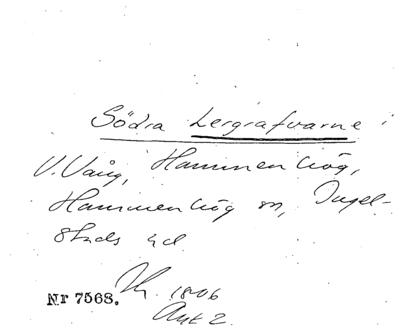 Södra Lergrafvarne i
V. Vång, Hammenhög,
Hammenhög sn, Ingel-
stads hd
Nr 7568. 1806
Akt 2